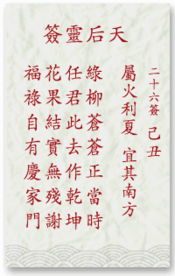 天后靈簽
二十六簽 己丑
屬火利夏 宜其南方
綠柳蒼蒼正當時
任君此去作乾坤
花果結實無殘謝
福祿自有慶家門